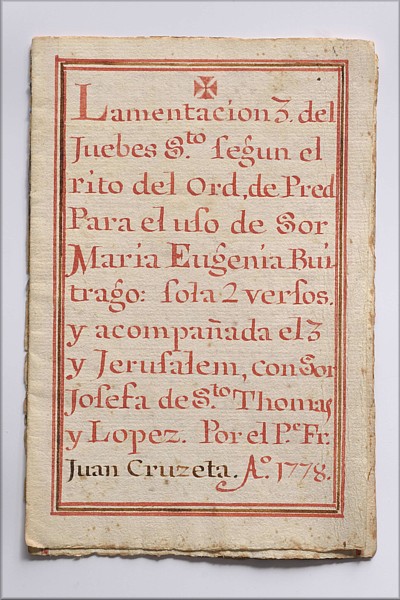 Lamentacion 3. del
Juebes S.to ſegun el
rito del Ord, de Pred
Para el uſo de Sor
Maria Eugenia Bui-
trago: ſola 2 verſos.
y acompañada el 3
y Jeruſalem, con Sor
Joſefa de S.to Thomas
y Lopez. Por el P.e Fr.
Juan Cruzeta. A.o 1778.